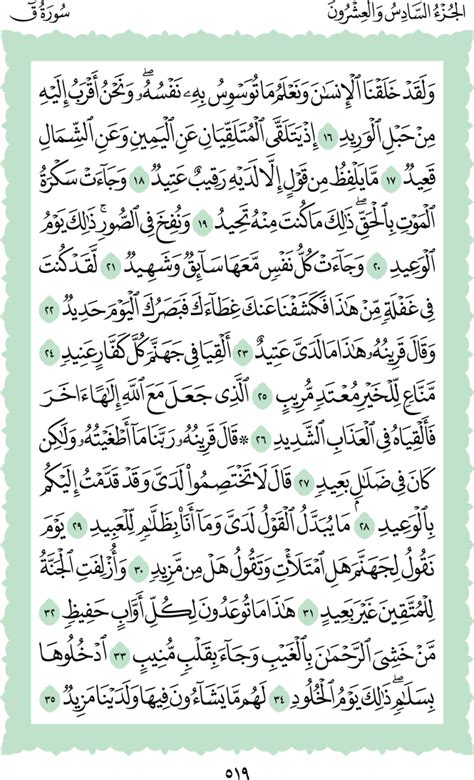 الجُزْءُ السَّادِسُ وَالعِشْرُونَ سُورَةُ قٓ
وَلَقَدْ خَلَقْنَا ٱلْإِنسَٰنَ وَنَعْلَمُ مَا تُوَسْوِسُ بِهِۦ نَفْسُهُۥۖ وَنَحْنُ أَقْرَبُ إِلَيْهِ
مِنْ حَبْلِ ٱلْوَرِيدِ ١٦ إِذْ يَتَلَقَّى ٱلْمُتَلَقِّيَانِ عَنِ ٱلْيَمِينِ وَعَنِ ٱلشِّمَالِ
قَعِيدٌ ١٧ مَّا يَلْفِظُ مِن قَوْلٍ إِلَّا لَدَيْهِ رَقِيبٌ عَتِيدٌ ١٨ وَجَآءَتْ سَكْرَةُ
ٱلْمَوْتِ بِٱلْحَقِّۖ ذَٰلِكَ مَا كُنتَ مِنْهُ تَحِيدُ ١٩ وَنُفِخَ فِى ٱلصُّورِۚ ذَٰلِكَ يَوْمُ
ٱلْوَعِيدِ ٢٠ وَجَآءَتْ كُلُّ نَفْسٍ مَّعَهَا سَآئِقٌ وَشَهِيدٌ ٢١ لَّقَدْ كُنتَ
فِى غَفْلَةٍ مِّنْ هَٰذَا فَكَشَفْنَا عَنكَ غِطَآءَكَ فَبَصَرُكَ ٱلْيَوْمَ حَدِيدٌ ٢٢
وَقَالَ قَرِينُهُۥ هَٰذَا مَا لَدَىَّ عَتِيدٌ ٢٣ أَلْقِيَا فِى جَهَنَّمَ كُلَّ كَفَّارٍ عَنِيدٍ ٢٤
مَّنَّاعٍ لِّلْخَيْرِ مُعْتَدٍ مُّرِيبٍ ٢٥ ٱلَّذِى جَعَلَ مَعَ ٱللَّهِ إِلَٰهًا ءَاخَرَ
فَأَلْقِيَاهُ فِى ٱلْعَذَابِ ٱلشَّدِيدِ ٢٦ * قَالَ قَرِينُهُۥ رَبَّنَا مَآ أَطْغَيْتُهُۥ وَلَٰكِن
كَانَ فِى ضَلَٰلٍۭ بَعِيدٍ ٢٧ قَالَ لَا تَخْتَصِمُوا۟ لَدَىَّ وَقَدْ قَدَّمْتُ إِلَيْكُم
بِٱلْوَعِيدِ ٢٨ مَا يُبَدَّلُ ٱلْقَوْلُ لَدَىَّ وَمَآ أَنَا۠ بِظَلَّٰمٍ لِّلْعَبِيدِ ٢٩ يَوْمَ
نَقُولُ لِجَهَنَّمَ هَلِ ٱمْتَلَأْتِ وَتَقُولُ هَلْ مِن مَّزِيدٍ ٣٠ وَأُزْلِفَتِ ٱلْجَنَّةُ
لِلْمُتَّقِينَ غَيْرَ بَعِيدٍ ٣١ هَٰذَا مَا تُوعَدُونَ لِكُلِّ أَوَّابٍ حَفِيظٍ ٣٢
مَّنْ خَشِىَ ٱلرَّحْمَٰنَ بِٱلْغَيْبِ وَجَآءَ بِقَلْبٍ مُّنِيبٍ ٣٣ ٱدْخُلُوهَا
بِسَلَٰمٍۖ ذَٰلِكَ يَوْمُ ٱلْخُلُودِ ٣٤ لَهُم مَّا يَشَآءُونَ فِيهَا وَلَدَيْنَا مَزِيدٌ ٣٥
٥١٩